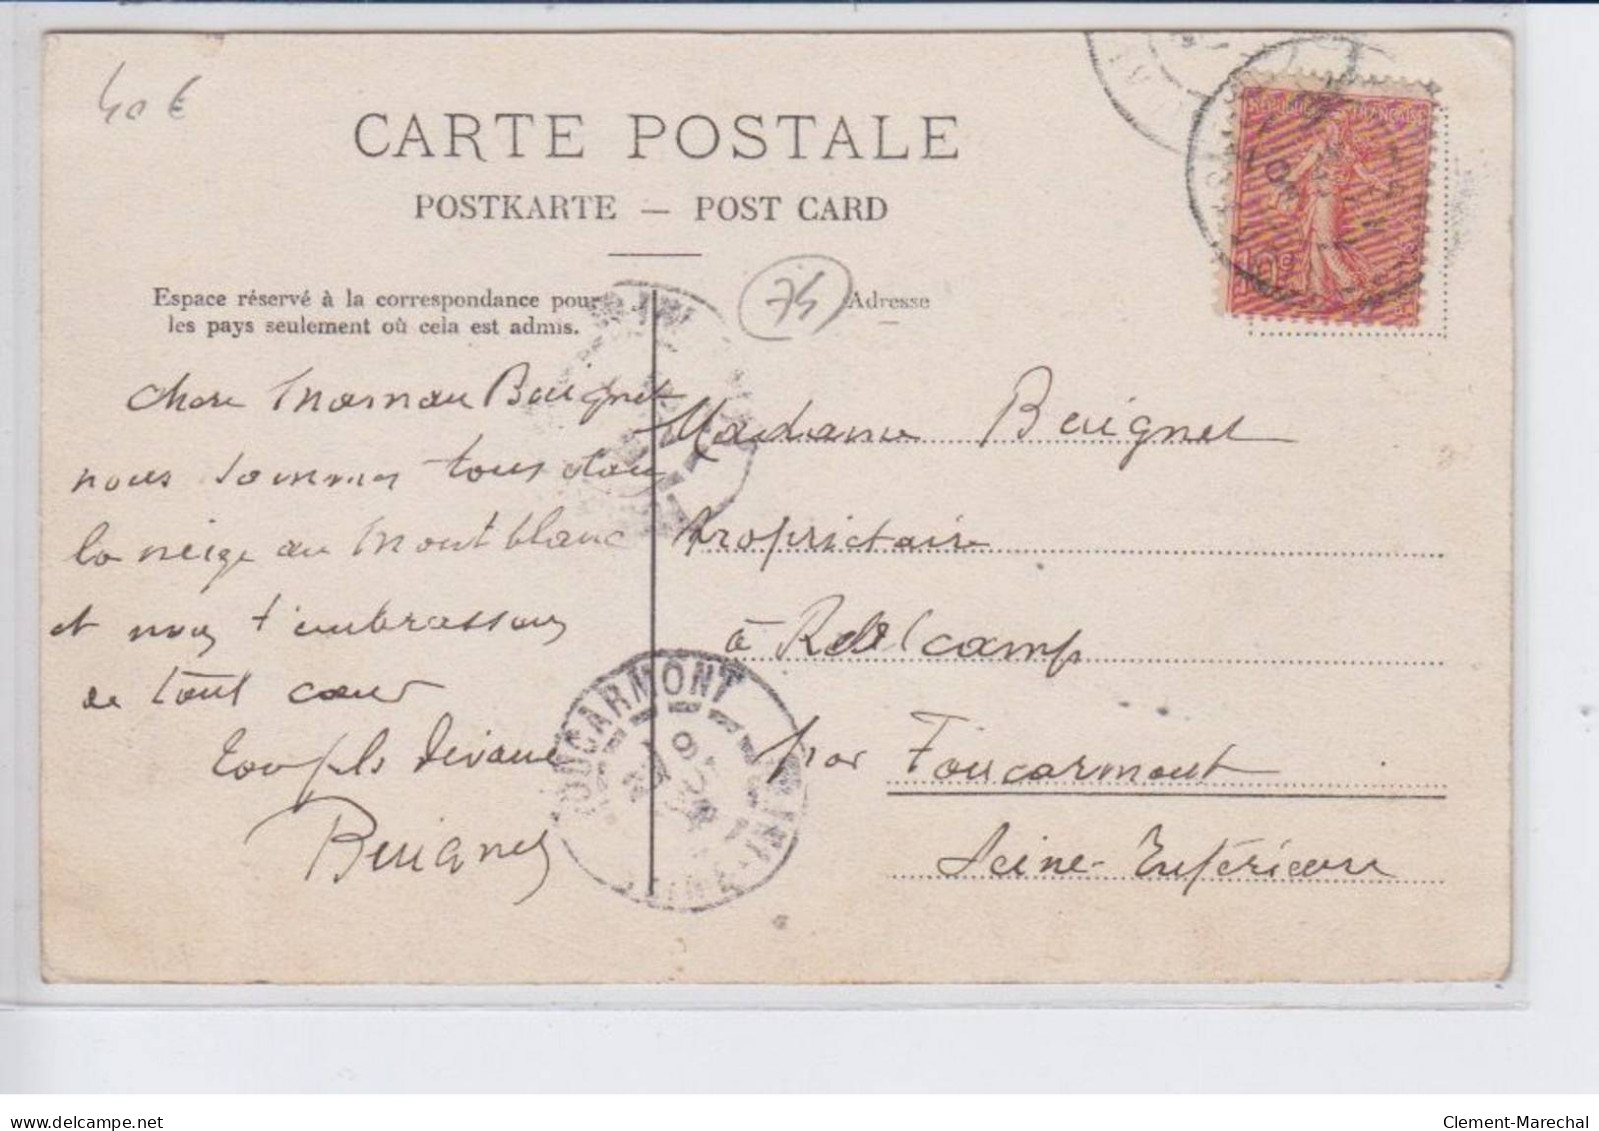 40 €
CARTE POSTALE
POSTKARTE — POST CARD
Espace réservé à la correspondance pour
les pays seulement où cela est admis.
74
Adresse
REPUBLIQUE FRANÇAISE
10c
chere maman Beignet
nous sommes tous dans
la neige au Mont blanc
et nous t'embrassons
de tout coeur
Beignet
Madame Beignet
Propriétaire
à Réalcamp
par Foucarmont
Seine-Inférieure
FOUCARMONT
SEINE-INFRE
delcampe.net
Clement-Marechal